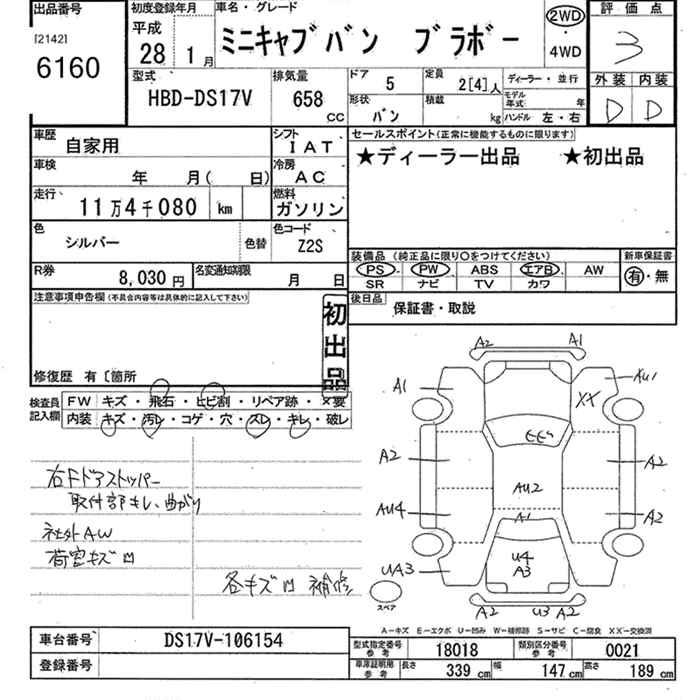 出品番号
[2142]
6160
初度登録年月
平成
28 1月
車名・グレード
ミニキャブバン ブラボー
2WD
・
4WD
評価点
3
外装 内装
D D
型式
HBD-DS17V
排気量
658
CC
ドア 5
定員 2[4]人
ディーラー・並行
形状 バン
積載 kg
モデル年式 年
ハンドル 左・右
車歴 自家用
シフト IAT
車検 年 月( 日)
冷房 AC
走行 11万4千080 km
燃料 ガソリン
色 シルバー
色替
色コード Z2S
R券 8,030円
名変通知期限 月 日
セールスポイント(正常に機能するものに限ります)
★ディーラー出品 ★初出品
装備品 (純正品に限り○をつけてください)
新車保証書
PS PW ABS エアB AW
SR ナビ TV カワ
有・無
後日品 保証書・取説
注意事項申告欄(不具合内容等は具体的に記入して下さい)
初出品
修復歴 有〔箇所
検査員記入欄
FW キズ・飛石・ヒビ割・リペア跡・×要
内装 キズ・汚レ・コゲ・穴・スレ・キレ・破レ
右Fドアストッパー
取付部キレ、曲がり
社外AW
荷室キズ凹
各キズ凹 補修
A2 A1
A1 AU1
XX
A2 A2
AU2
AU4 A2
A1
U4
A3
UA3
スペア
A2 U3 A2
A-キズ E-エクボ U-凹み W-補修跡 S-サビ C-腐食 XX-交換済
車台番号 DS17V-106154
登録番号
型式指定番号参考 18018
類別区分番号参考 0021
車庫証明用参考 長さ 339cm 幅 147cm 高さ 189cm